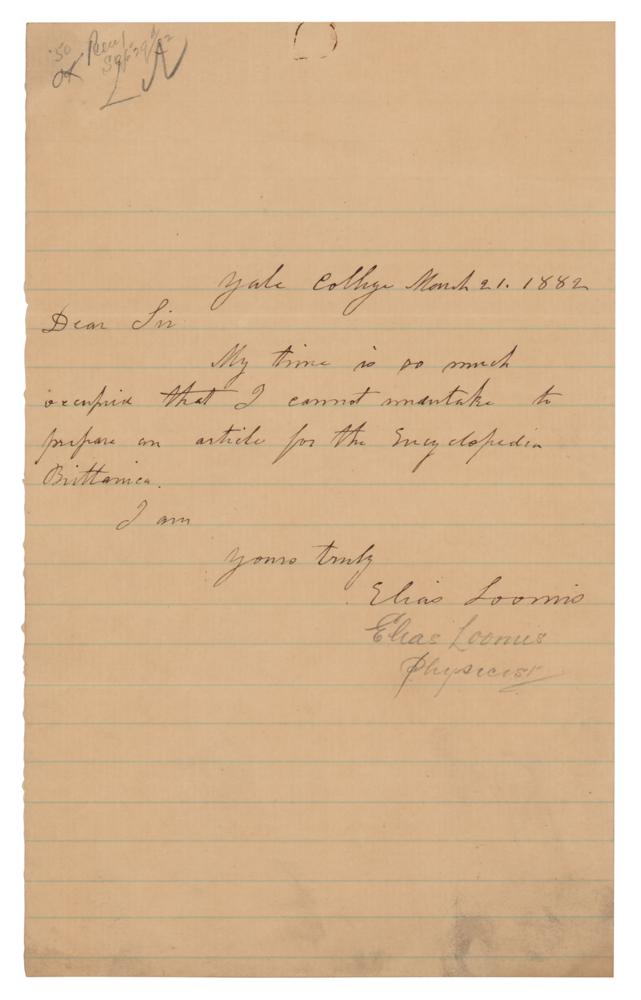 Yale College March 21. 1882
Dear Sir
My time is so much
occupied that I cannot undertake to
prepare an article for the Encyclopedia
Brittanica.
I am
Yours truly
Elias Loomis
Elias Loomis
Physicist